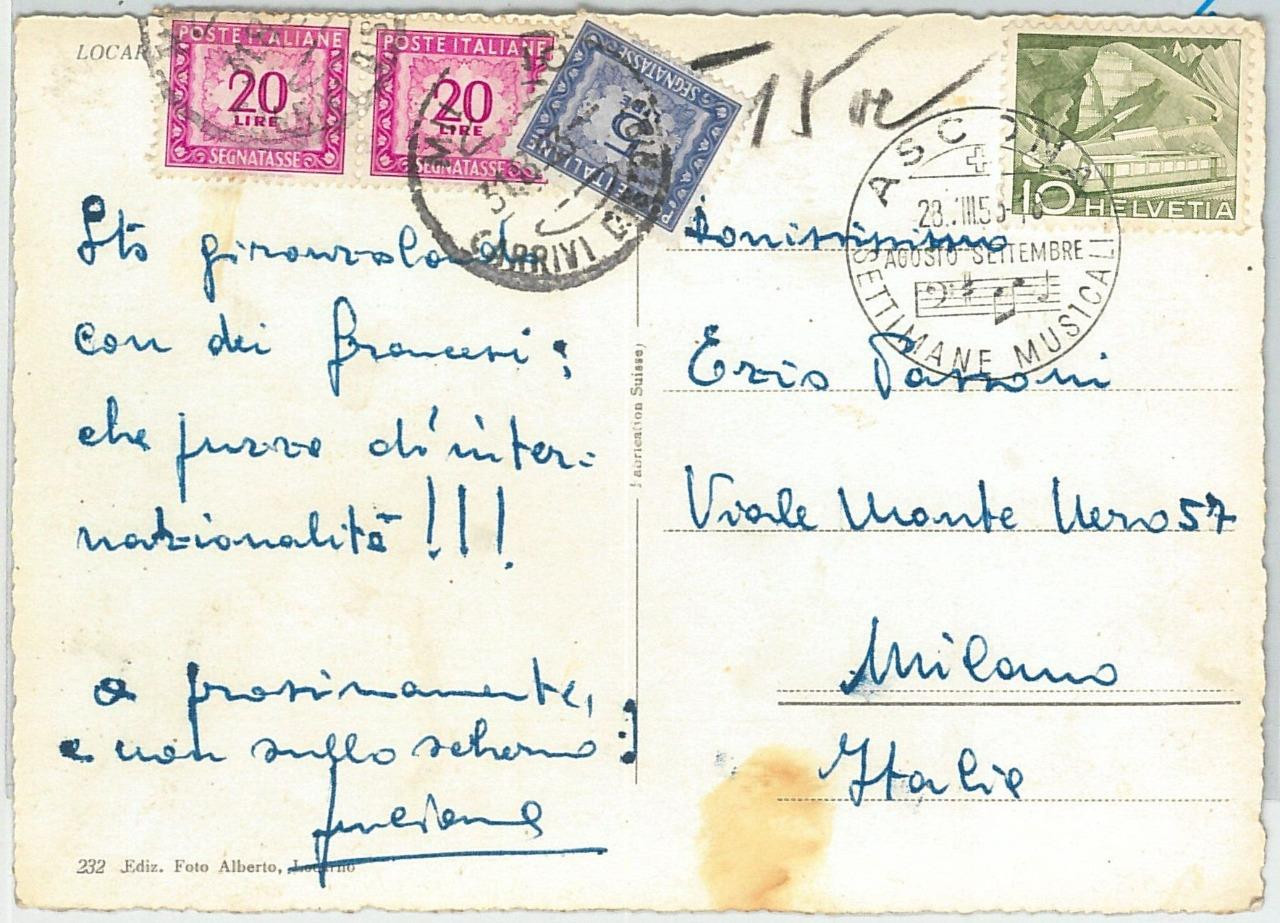 LOCAR
POSTE ITALIANE
20
LIRE
SEGNATASSE
POSTE ITALIANE
20
LIRE
SEGNATASSE
SEGNATASSE
5
E ITALIANE
ARRIVI
15 ct
10 HELVETIA
ASCONA
28. III.5
AGOSTO SETTEMBRE
SETTIMANE MUSICALI
Sto gironzolando
con dei francesi;
che puzzo d'inter-
nazionalità!!!
a prossimamente,
e non sullo schermo!
Luciana
232 Ediz. Foto Alberto, Locarno
(Fabrication Suisse)
Bonissimo
Ezio Passoni
Viale Monte Nero 57
Milano
Italia